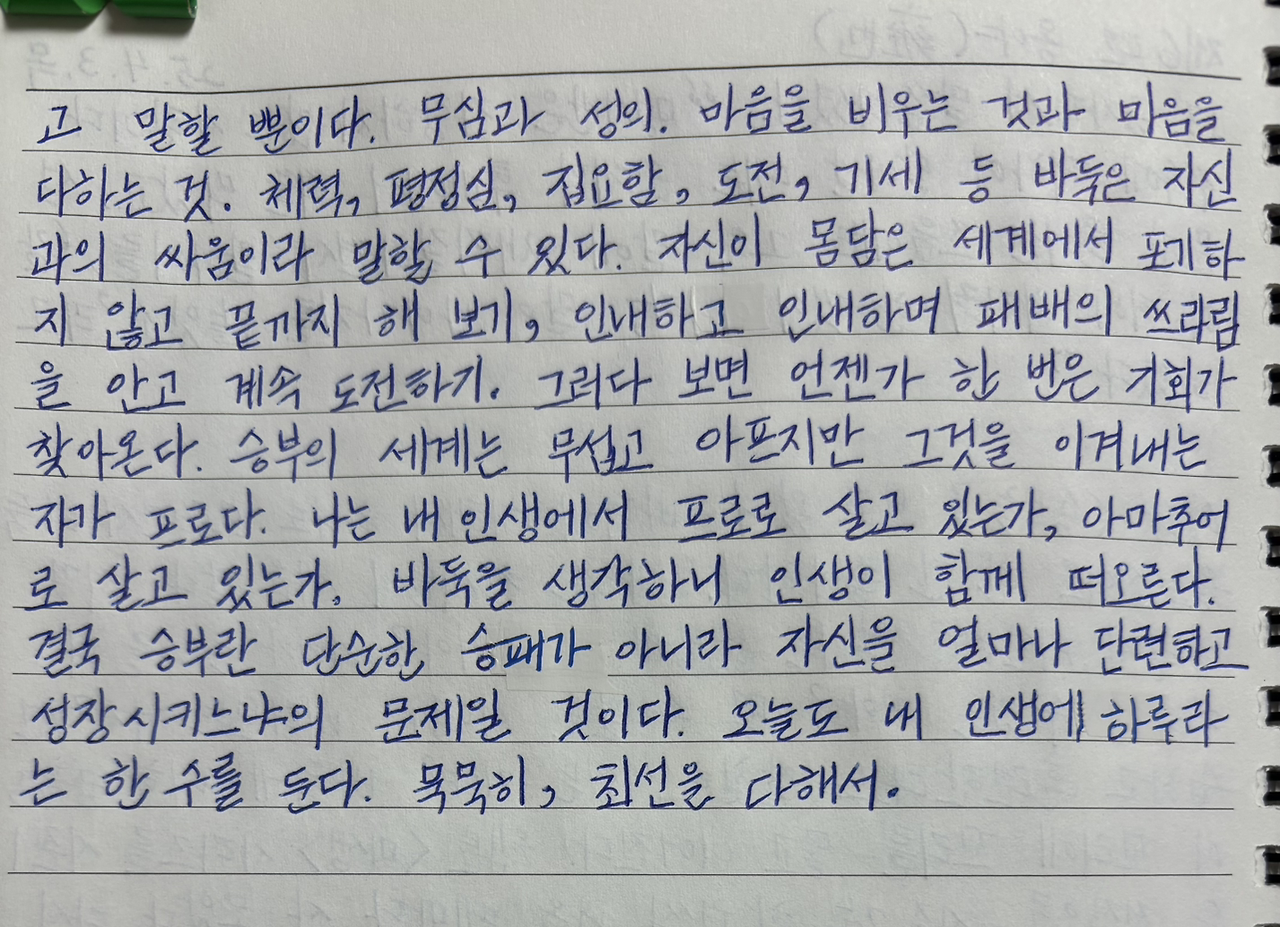 고 말할 뿐이다. 무심과 성의. 마음을 비우는 것과 마음을
다하는 것. 체력, 평정심, 집요함, 도전, 기세 등 바둑은 자신
과의 싸움이라 말할 수 있다. 자신이 몸담은 세계에서 포기하
지 않고 끝까지 해 보기, 인내하고 인내하며 패배의 쓰라림
을 안고 계속 도전하기. 그러다 보면 언젠가 한 번은 기회가
찾아온다. 승부의 세계는 무섭고 아프지만 그것을 이겨내는
자가 프로다. 나는 내 인생에서 프로로 살고 있는가, 아마추어
로 살고 있는가. 바둑을 생각하니 인생이 함께 떠오른다.
결국 승부란 단순한 승패가 아니라 자신을 얼마나 단련하고
성장시키느냐의 문제일 것이다. 오늘도 내 인생에 하루라
는 한 수를 둔다. 묵묵히, 최선을 다해서.